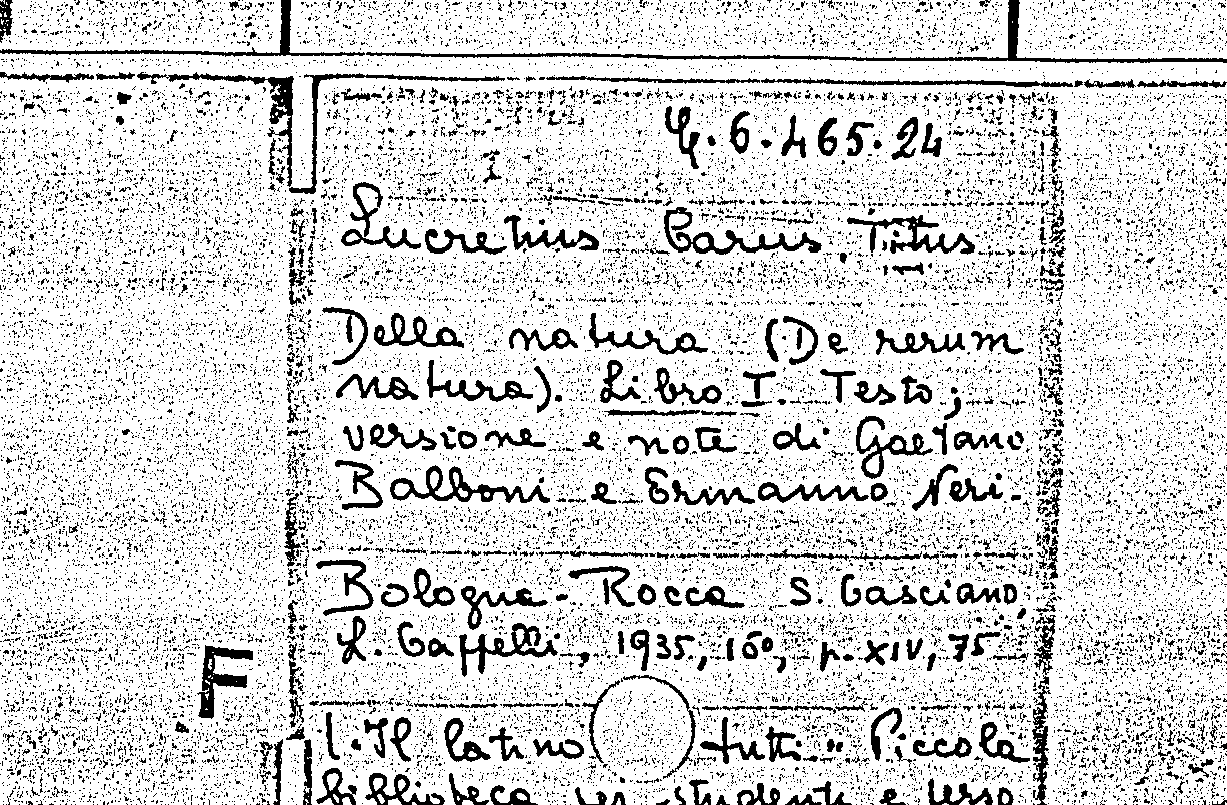 6.465.24
Lucretius Carus, Titus
Della natura (De rerum
natura). Libro I. Testo;
versione e note di Gaetano
Balboni e Ermanno Neri.
Bologna-Rocca S. Casciano,
L. Cappelli, 1935, 16º, p. XIV, 75
F
Il latino tutti" Piccola
biblioteca per studenti e